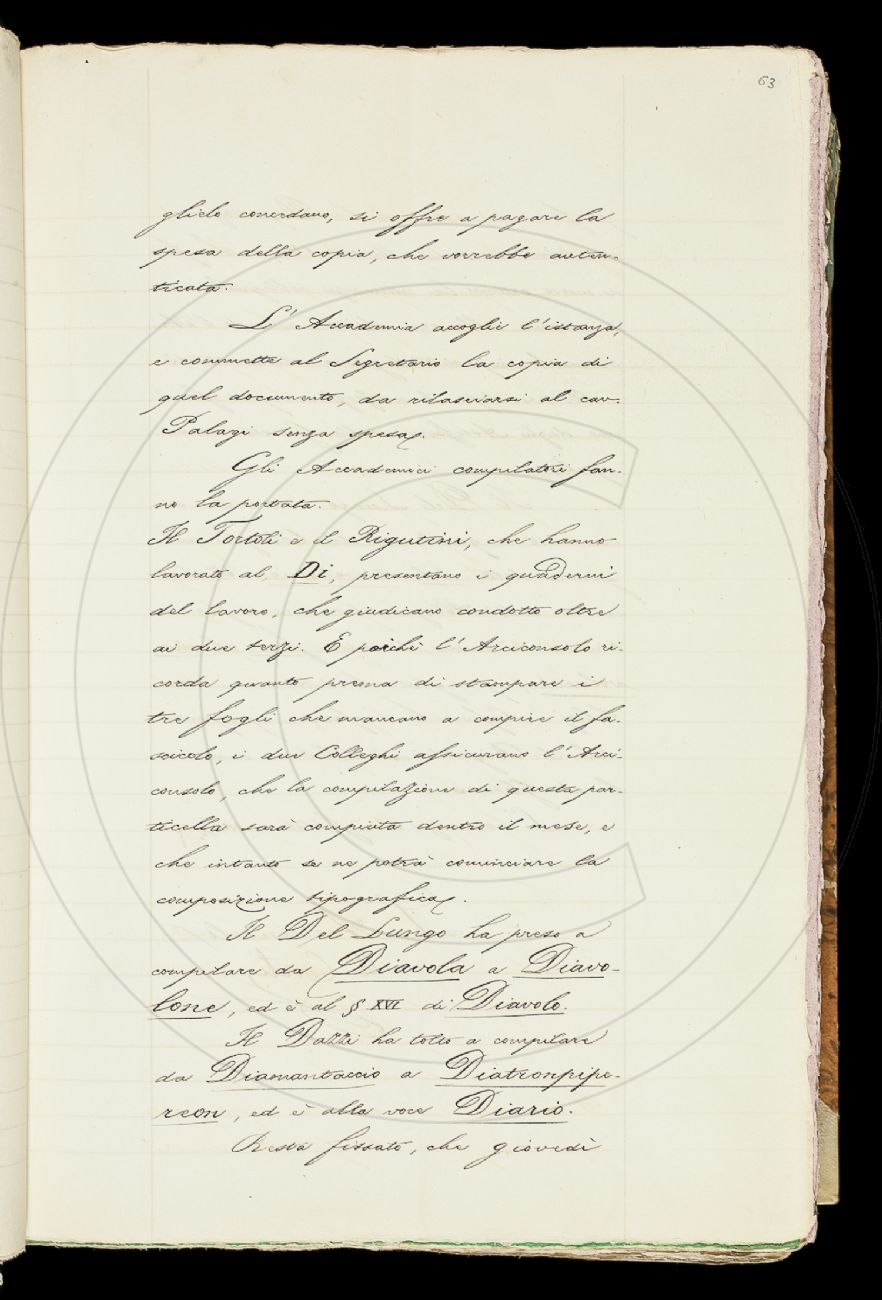 63
glielo concedano, si offre a pagare la
spesa della copia, che vorrebbe auten-
ticata.
L'Accademia accoglie l'istanza,
e commette al Segretario la copia di
quel documento, da rilasciarsi al cav.
Palagi senza spesa.
Gli Accademici compilatori fan-
no la portata.
Il Tortoli e il Rigutini, che hanno
lavorato al Di, presentano i quaderni
del lavoro, che giudicano condotto oltre
ai due terzi. E poichè l'Arciconsolo ri-
corda quanto prema di stampare i
tre fogli che mancano a compire il fa-
scicolo, i due Colleghi assicurano l'Arci-
consolo, che la compilazione di questa par-
ticella sarà compiuta dentro il mese, e
che intanto se ne potrà cominciare la
composizione tipografica.
Il Del Lungo ha preso a
compilare da Diavola a Diavo-
lone, ed è al § XVI di Diavolo.
Il Dazzi ha tolto a compilare
da Diamantaccio a Diatronpipe-
reon, ed è alla voce Diario.
Resta fissato, che giovedì